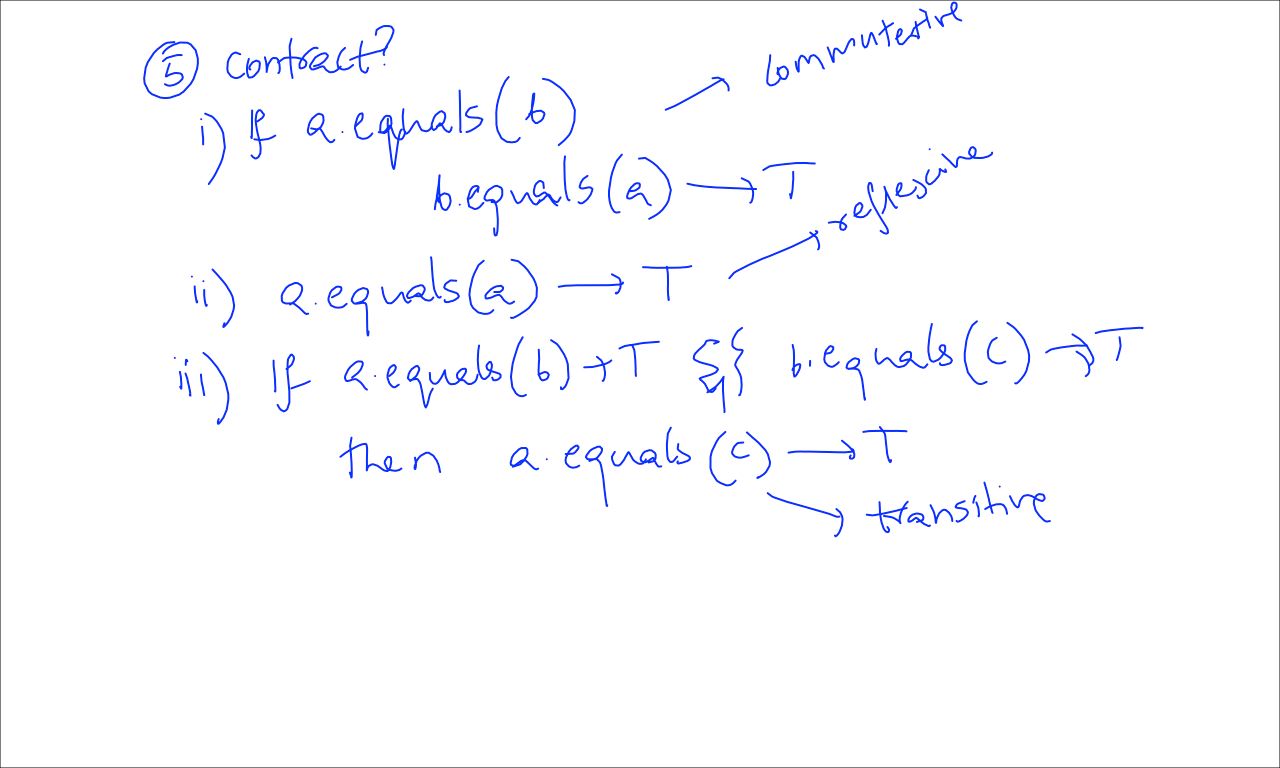 ⑤ contract?
i) If a.equals(b) → commutative
b.equals(a) → T
ii) a.equals(a) → T → reflexive
iii) If a.equals(b) → T && b.equals(c) → T
then a.equals(c) → T
→ transitive